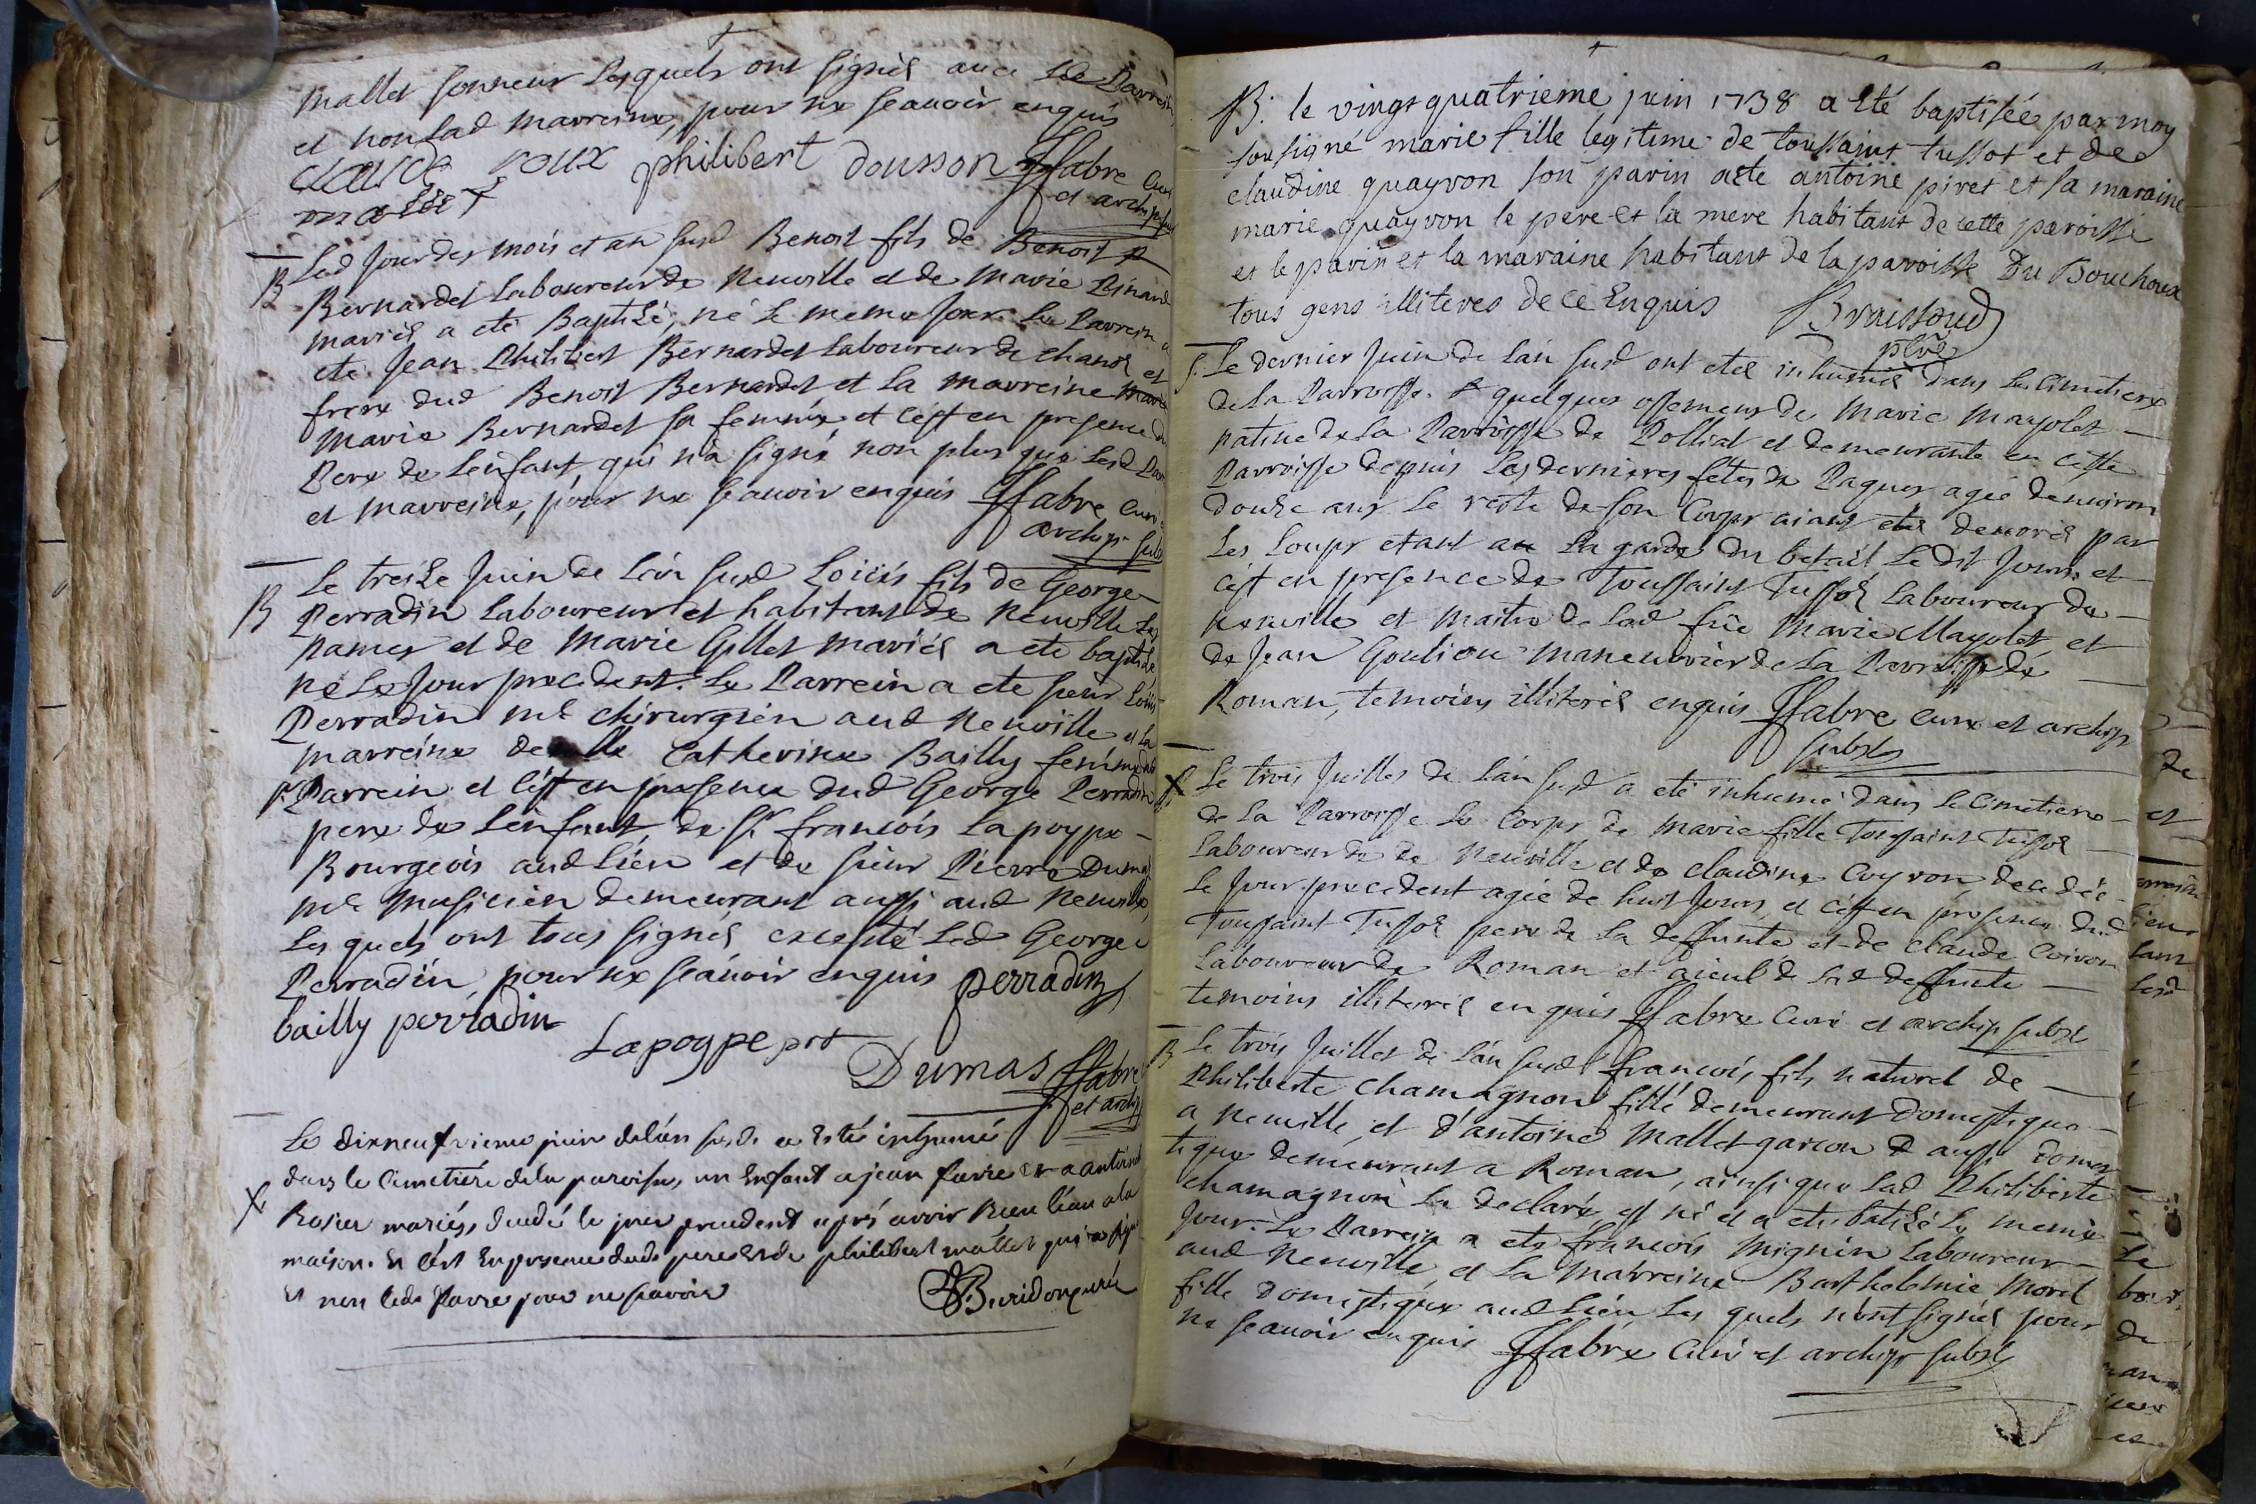 mallet sonneur lesquels ont signés avec led Parrein,
et non lad marreine, pour ne sçeauoir enquis
claude roux philibert dousson JJfabre curé
malet et archip sub
B Led jour des mois et an susd Benoit fils de Benoit
Bernardet laboureur de Neuville et de Marie Renard
mariés a eté Baptizé, né le meme Jour. Le Parrein a
eté Jean Philibert Bernardet laboureur de chanos et
frere dud Benoit Bernardet et la marreine
Marie Bernardet sa femme et c'est en presence du
Pere de l'enfant, qui n'a signé non plus que lesd Par
et marreine, pour ne sçeauoir enquis JJfabre curé
archip. sub
B Le treize Juin de l'an susd Loüis fils de George
Perradin laboureur et habitant de Neuville les
Dames et de Marie Gillet mariés a eté baptizé,
né le Jour precedent. Le Parrein a eté sieur Loüis
Perradin me chirurgien aud Neuville et la
marreine delle Catherine Bailly femme dud
Sr Parrein et c'est en presence dud George Perradin
pere de l'enfant, de Sr francois Lapoype
Bourgeois aud lieu et de sieur Pierre Dumas
me Musicien demeurant aussi aud Neuville,
les quels ont tous signés excepté led George
Perradin, pour ne sçeauoir enquis perradin
bailly perradin
Lapoype prt
Dumas JJfabre
et archip
Le dixneufvieme juin de l'an susd. a esté inhumé
dans le Cimetiere de la paroisse, un Enfant a jean favre et a antoinet
X Rosier mariés, decedé le jour precedent aprés avoir Receu l'eau a la
maison. Et c'est En presence dudt pere et de philibert mallet qui a signé
et non ledt favre pour ne sçavoir
Buridon curé
B. le vingt quatrieme juin 1738 a eté baptisée par moy
sousigné marie fille legitime de toussaint tussot et de
claudine quayvon son parin a ete antoine piret et sa maraine
marie quayvon le pere et la mere habitant de cette paroisse
et le parin et la maraine habitant de la paroisse Du Bouchoux
tous gens illiteres de ce Enquis Braissoud
ptre
S. Le dernier Juin de l'an susd ont etés inhumés dans le Cimetiere
de la Parroisse. quelques ossemens de Marie Mayolet
native de la Parroisse de Polliat et demeurante en cette
Parroisse depuis les dernieres fêtes de Paques agée denuiron
douze ans le reste de son Corps aiant eté deuoré par
les Loups etant a la garde du betail le dit Jour. et
c'est en presence de Toussaint Tussot laboureur de
Neuville et maitre de lad fûe Marie Mayolet, et
de Jean Goulion maneuvrier de la Parroisse de
Roman, temoins illiterés enquis JJfabre curé et archip
subst
X Le trois Juillet de l'an susd a eté inhumé dans le Cimetiere
de la Parroisse le Corps de Marie fille Toussaint Tussot
laboureur de de Neuville et de claudine Coyvon, decedée
le Jour precedent agée de huit Jours, et c'est en presence dud
Toussaint Tussot pere de la deffunte et de claude Coivon
laboureur de Roman et aieul de lad deffunte
temoins illiterés enquis JJfabre Curé et archip subst
B Le trois Juillet de l'an susd francois fils naturel de
Philiberte Chamagnon fille demeurant Domestique
a Neuville, et d'antoine Mallet garcon aussi domes
tique demeurant a Roman, ainsi que lad Philiberte
chamagnon l'a declaré est né et a eté batizé le meme
Jour. Le Parrein a eté francois Mignin laboureur
aud Neuville, et la Marreine Barthelemie Morel
fille domestique aud lieu les quels n'ont signés pour
ne sçeauoir enquis JJfabre Curé et archip subst
de
et
lad
le
de